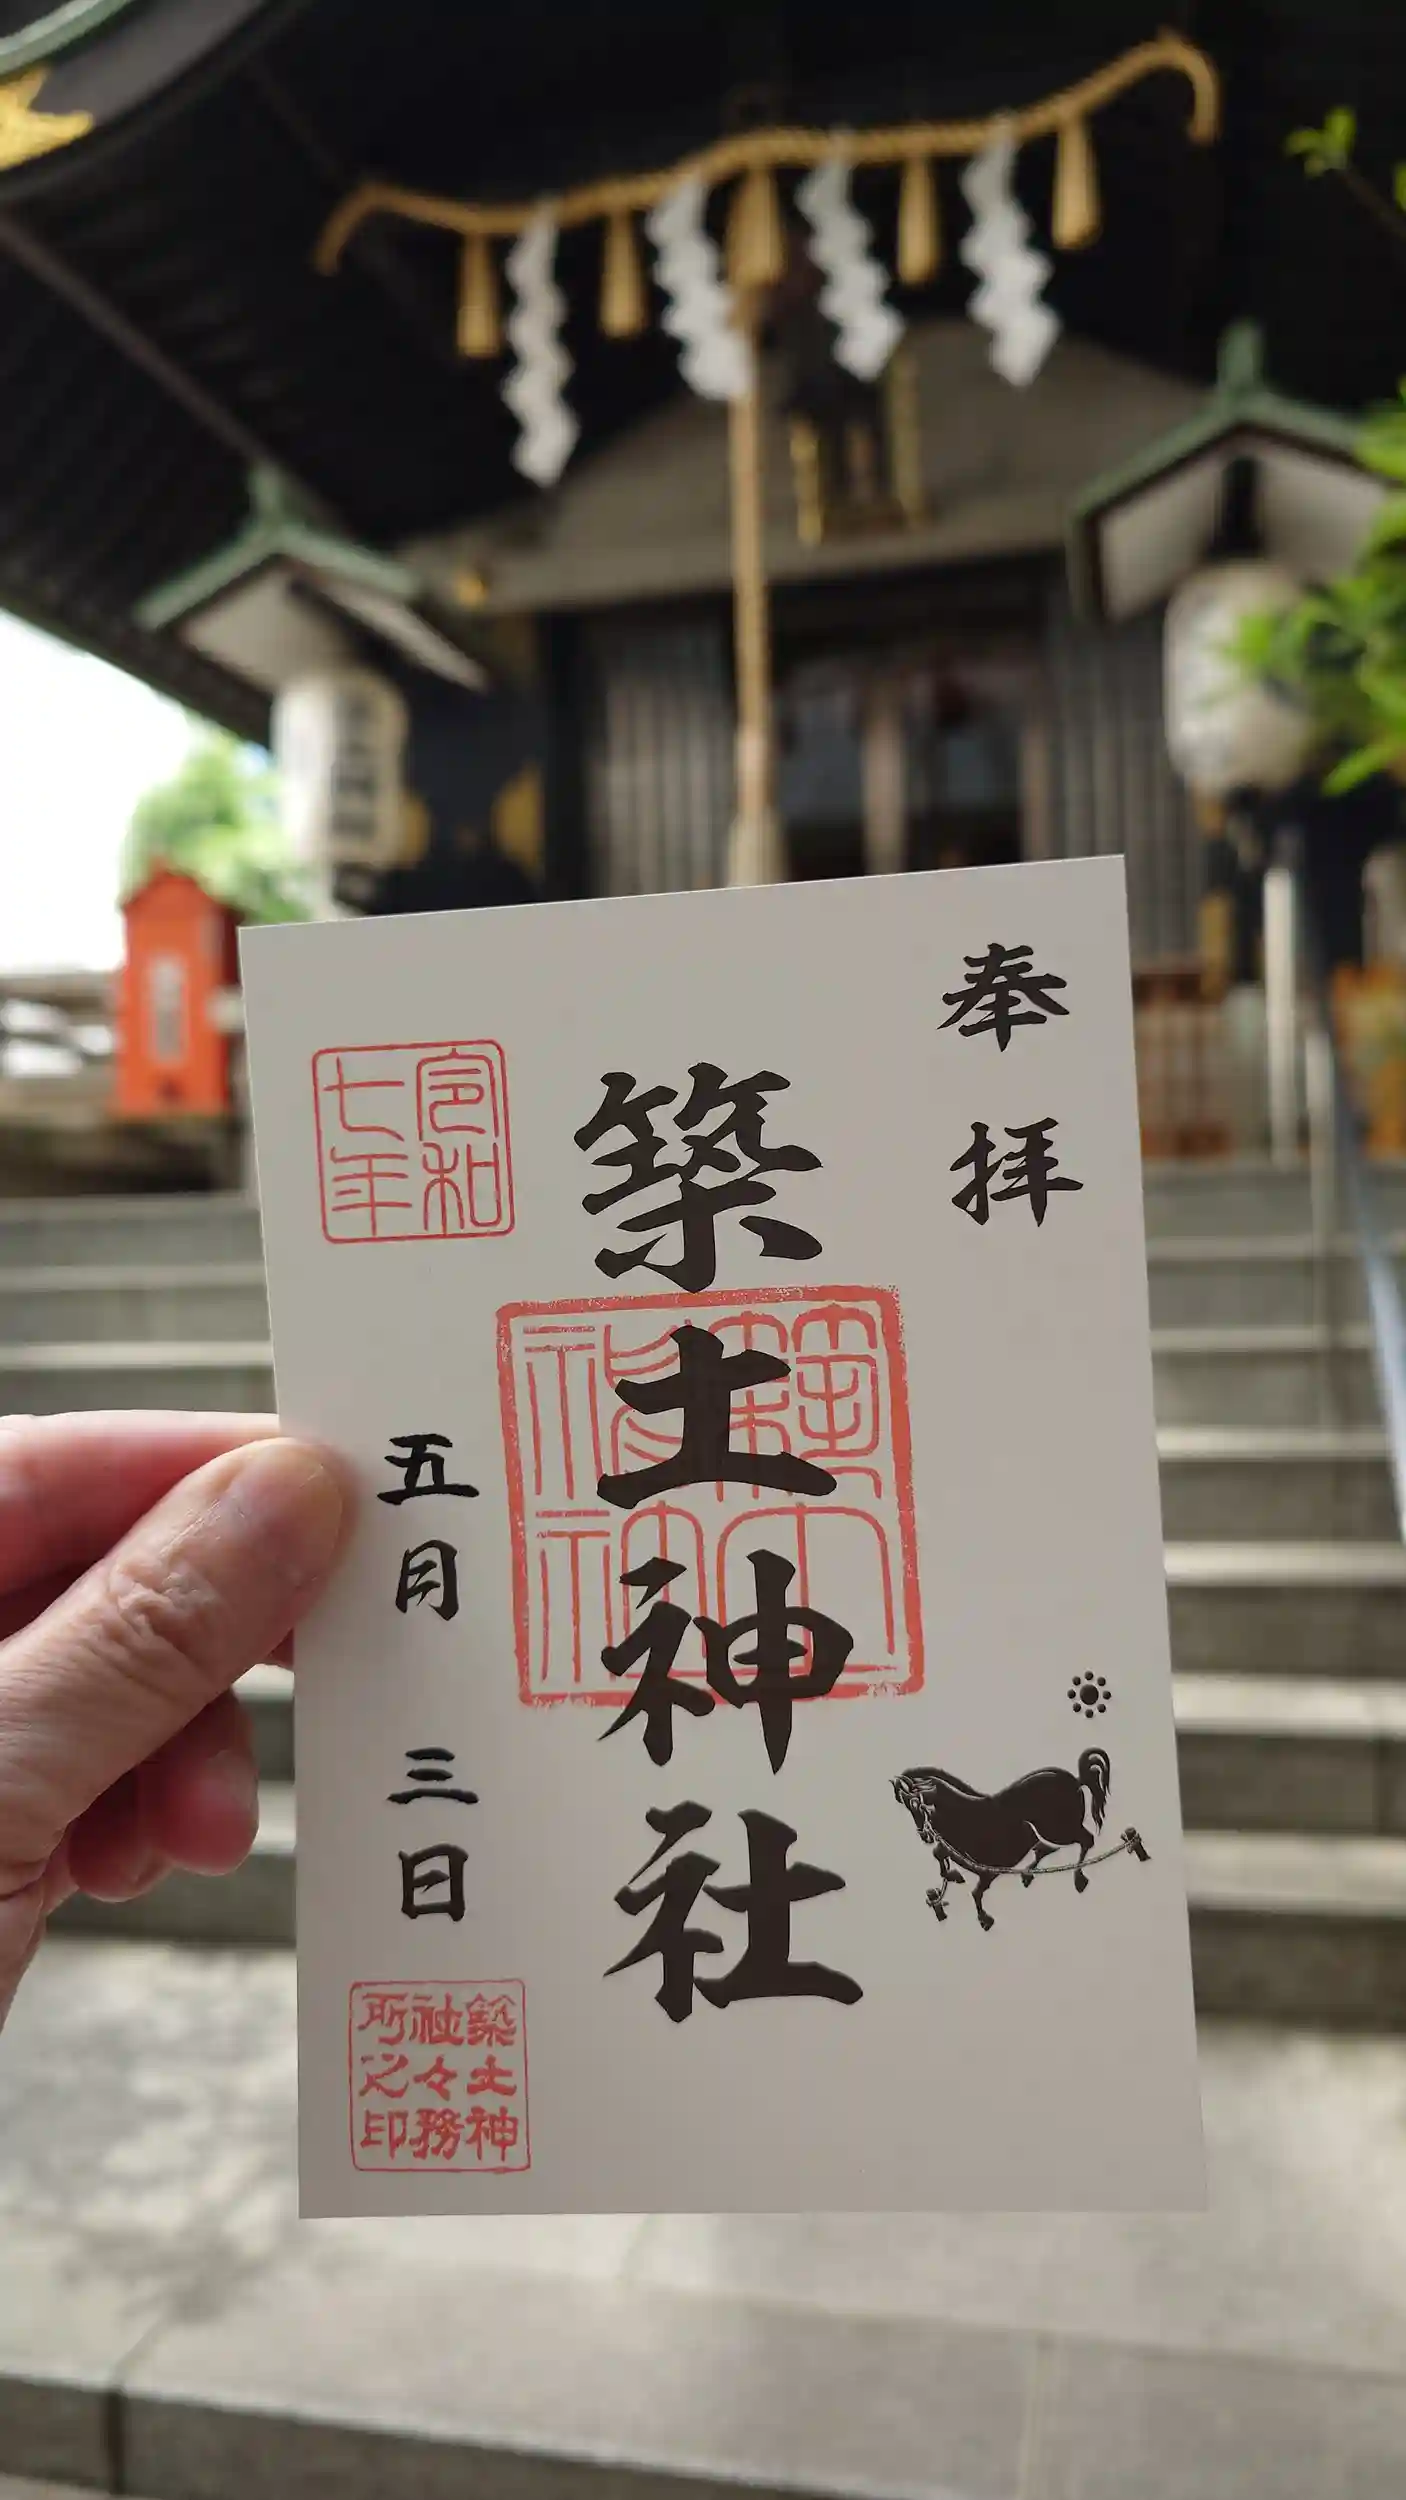 奉拝
築土神社
築土神社
令和七年
五月三日
築土神社々務所之印